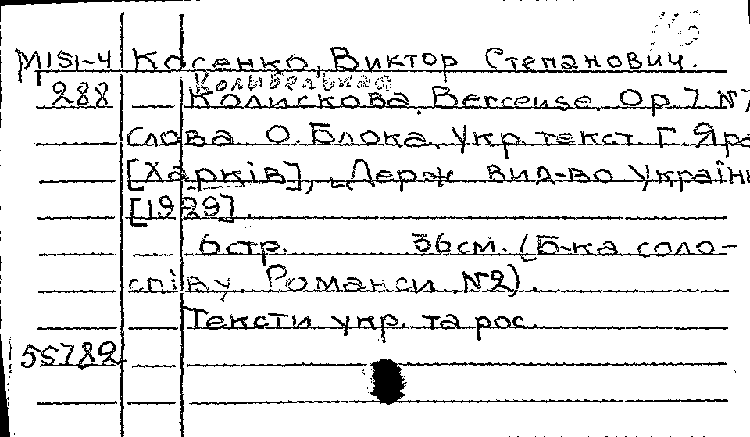 М1S1-4 Косенко, Виктор Степанович.
Колыбельная
288 Колискова. Berceuse. Op. 7 №
слова О. Блока, Укр. текст Г. Яро
[Харків], Держ вид-во України
[1929].
6 стр. 36 см. (Б-ка соло-
співу. Романси №2).
Тексти укр. та рос.
55782